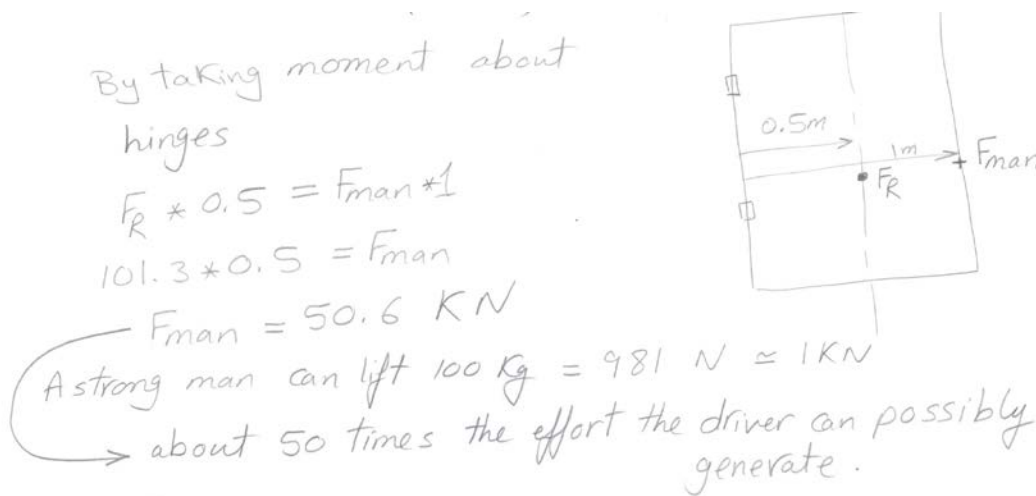 By taking moment about
hinges
F_R * 0.5 = Fman * 1
101.3 * 0.5 = Fman
Fman = 50.6 KN
A strong man can lift 100 Kg = 981 N ≃ 1KN
about 50 times the effort the driver can possibly
generate.
0.5m
1m
Fman
F_R